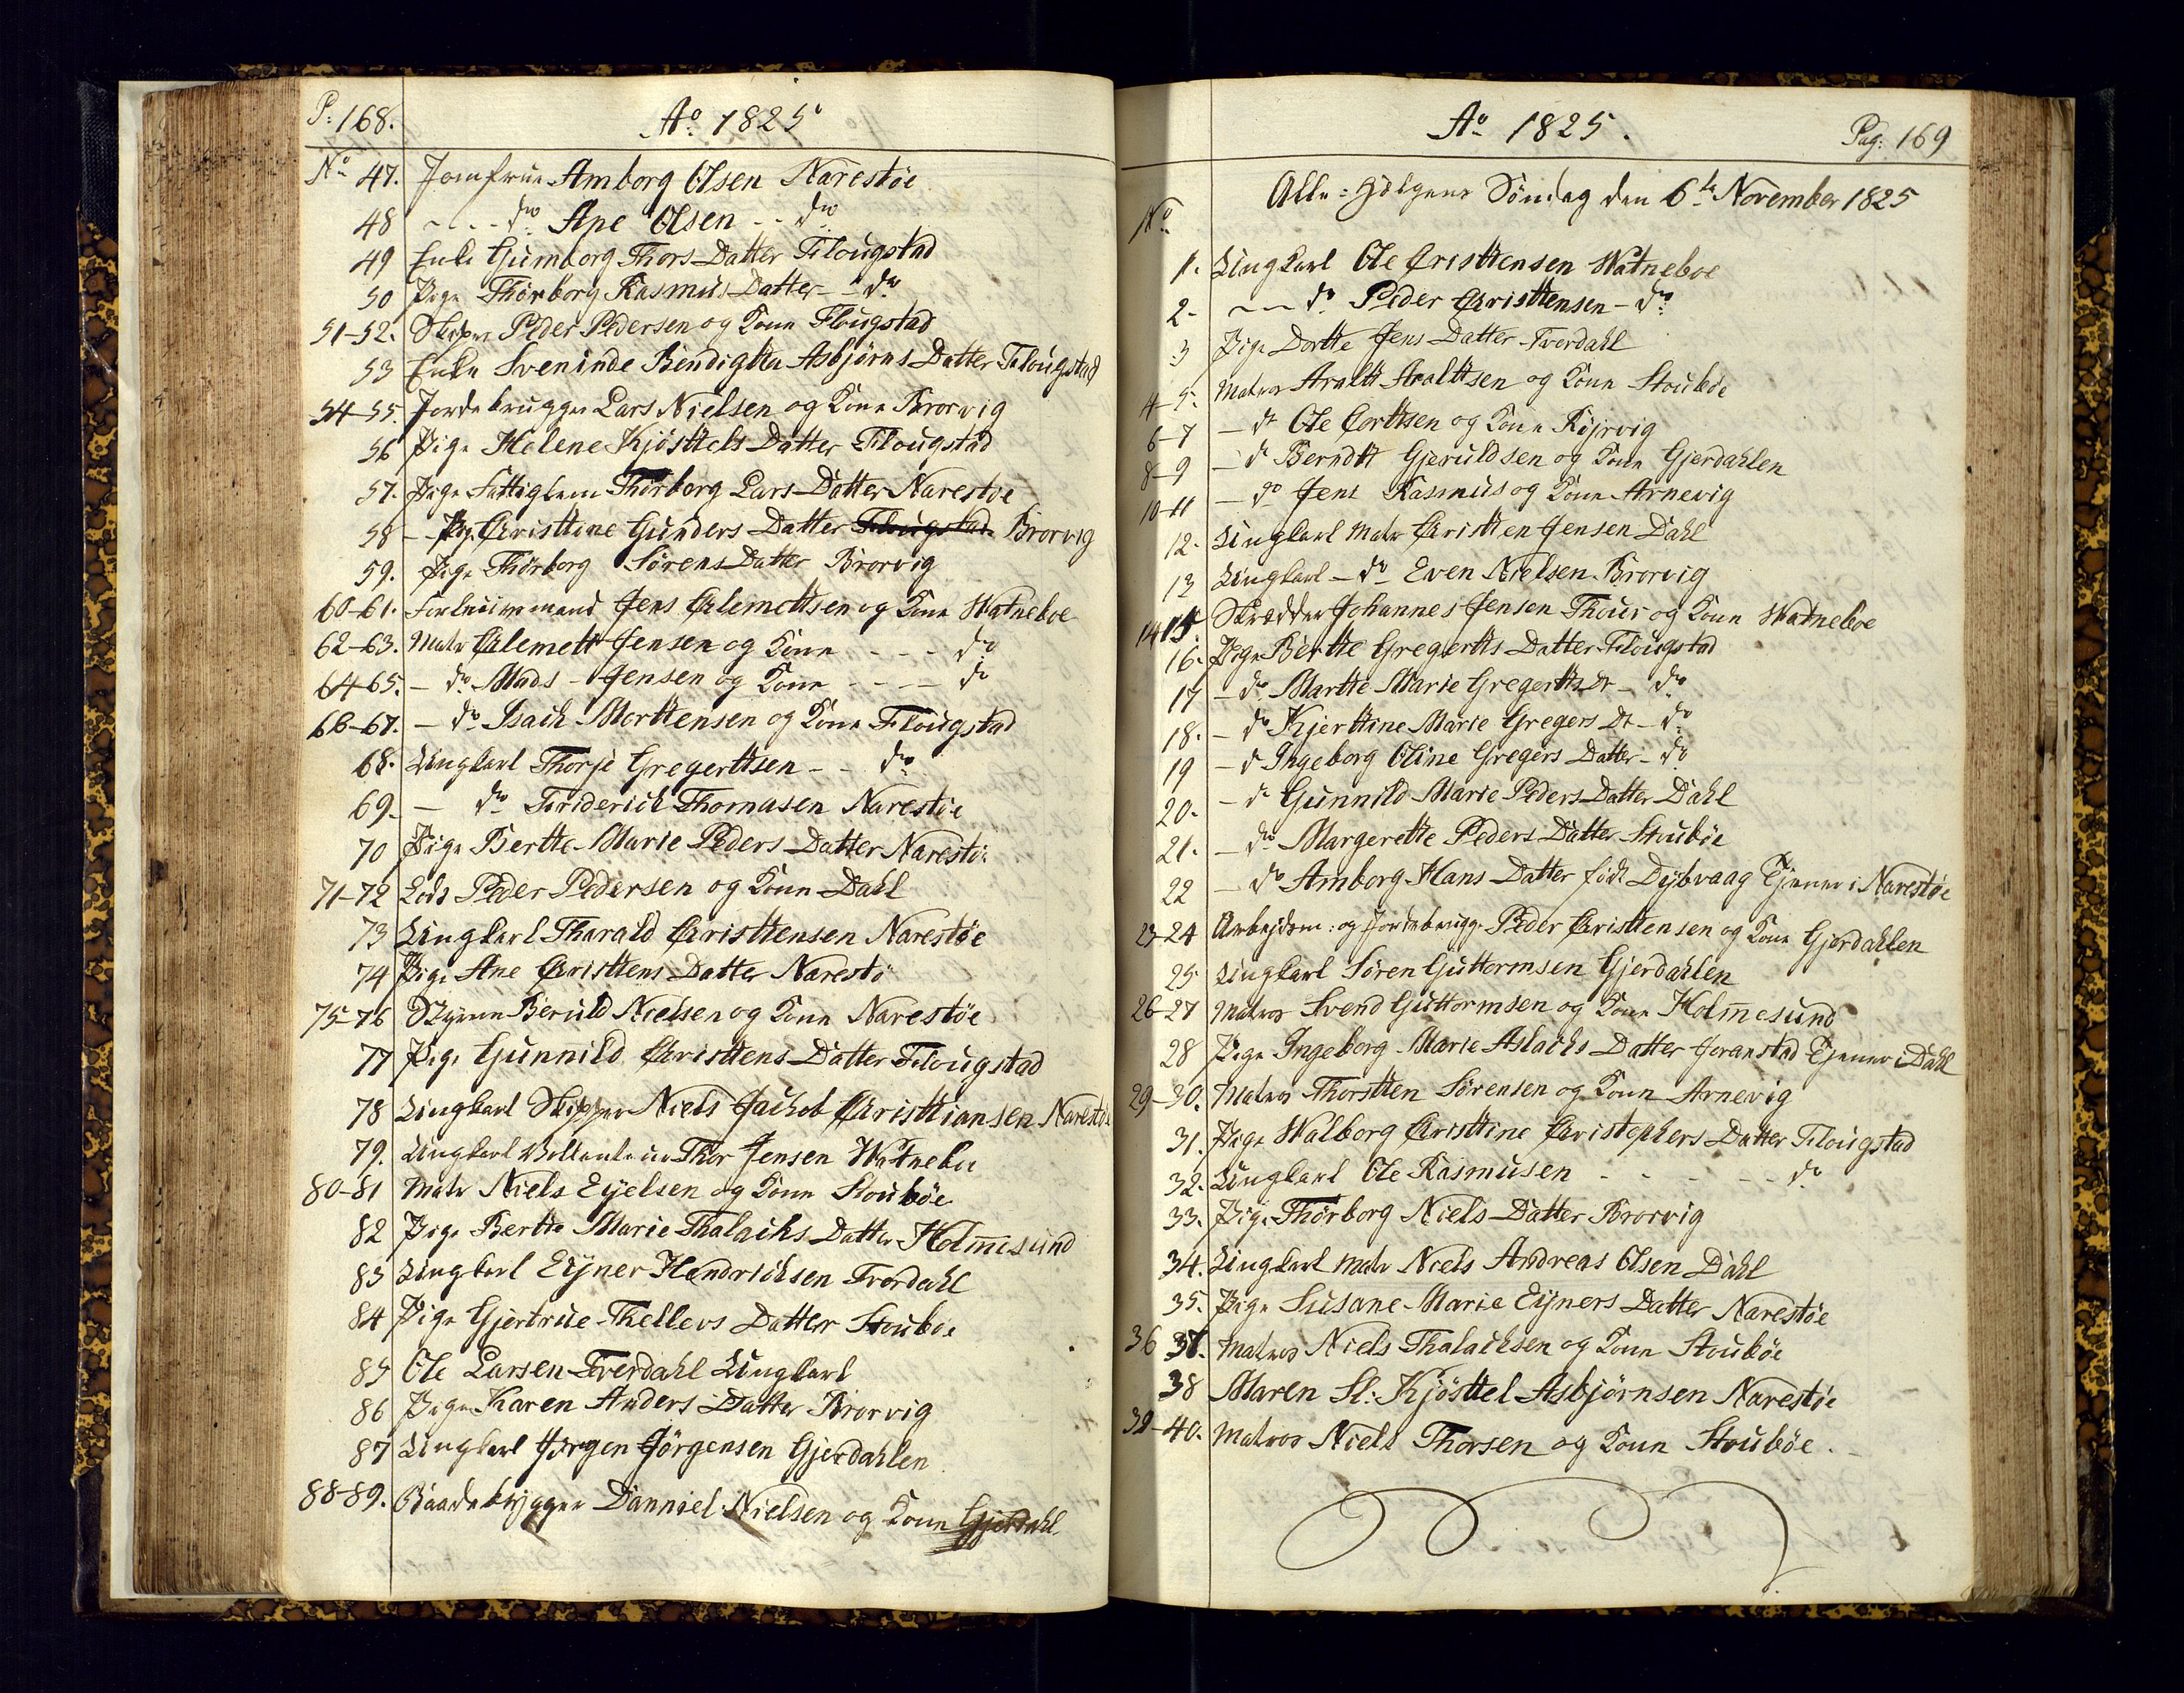 P: 168.
Ao 1825
No 47. Jomfrue Amborg Olsen Narestøe
48 - - - do Ane Olsen - - do
49 Enke Gumborg Thors Datter Flougstad
50 Pige Thorborg Rasmus Datter - do
51-52. Skipper Peder Pedersen og Kone Flougstad
53 Enke Sveninde Bendigtta Asbjørns Datter Flougstad
54-55. Jordebrugger Lars Nielsen og Kone Brorvig
56 Pige Helene Kjösttels Datter Flougstad
57. Pige Fattiglem Thorborg Lars Datter Narestøe
58 - Pig. Christtine Gunders Datter Flougstad Brorvig
59. Pige Thörborg Sörens Datter Brorvig
60-61. Jens Clemettsen og Kone Watneboe
62-63. Matr Clemett Jensen og Kone - - - do
64-65. - do Mads Jensen og Kone - - - do
66-67. - do Isach Morttensen og Kone Flougstad
68. Ungkarl Thorje Gregerttsen - - do
69. - do Friderich Thomasen Narestøe
70 Pige Bertte Marie Peders Datter Narestøe
71-72 Lods Peder Pedersen og Kone Dahl
73 Ungkarl Tharald Christtensen Narestøe
74 Pige Ane Christtens Datter Narestö
75-76 Styrm Beruld Nielsen og Kone Narestøe
77 Pige Gunnild Christtens Datter Flougstad
78 Ungkarl Skipper Niels Jachob Christtiansen Narestøe
79. Ungkarl Thor Jensen Watnebu
80-81 Matr Niels Eyelsen og Kone Stoubøe
82 Pige Bertte Marie Thalachs Datter Holmesund
83 Ungkarl Eyner Hendrichsen Tverdahl
84 Pige Gjertrue Thellevs Datter Stoubøe
85 Ole Larsen Tverdahl Ungkarl
86 Pige Karen Anders Datter Brorvig
87 Ungkarl Jörgen Jörgensen Gjerdahlen
88-89. Baadebygger Danniel Nielsen og Kone Gjerdahl.
Ao 1825.
Pag: 169
Alle-Helgens Söndag den 6te November 1825
No
1. Ungkarl Ole Christtensen Watneboe
2- - - do Peder Christtensen - do
3 Pige Dortte Jens Datter Tverdahl
4-5. Matros Araltt Aralttsen og Kone Stoubøe
6-7 - do Ole Corttsen og Kone Rijrvig
8-9 - do Berndtt Gjeruldsen og Kone Gjerdahlen
10-11 - do Jens Rasmus og Kone Arnevig
12- Ungkarl Matr Christten Jensen Dahl
13 Ungkarl - do Even Nielsen Brorvig
14 15. Skrædder Johannes Jensen og Kone Watneboe
16. Pige Bertte Gregertts Datter Flougstad
17 - do Martte Marie Gregertts Dr - do
18. - do Kjerttine Marie Gregers Dr - do
19 - do Ingeborg Oline Gregers Datter - do
20. - do Gunnild Marie Peders Datter Dahl
21. - do Margerette Peders Datter Stoubøe
22 - do Amborg Hans Datter född Dybvaag Tjener i Narestøe
23-24 Arbejdsm: og Jordebrugg. Peder Christtensen og Kone Gjerdahlen
25 Ungkarl Sören Guttormsen Gjerdahlen
26-27 Matros Svend Guttormsen og Kone Holmesund
28 Pige Ingeborg Marie Aslachs Datter Joranstad Tjener i Dahl
29-30. Matros Thorstten Sörensen og Kone Arnevig
31. Pige Walborg Christtine Christophers Datter Flougstad
32. Ungkarl Ole Rasmusen - - - - - do
33. Pige Thörborg Niels Datter Brorvig
34. Ungkarl Matr Niels Andreas Olsen Dahl
35. Pige Susane Marie Eyners Datter Narestøe
36 37. Matros Niels Thalachsen og Kone Stoubøe
38 Maren Sl: Kjösttel Asbjørnsen Narestøe
39-40. Matros Niels Thorsen og Kone Stoubøe.